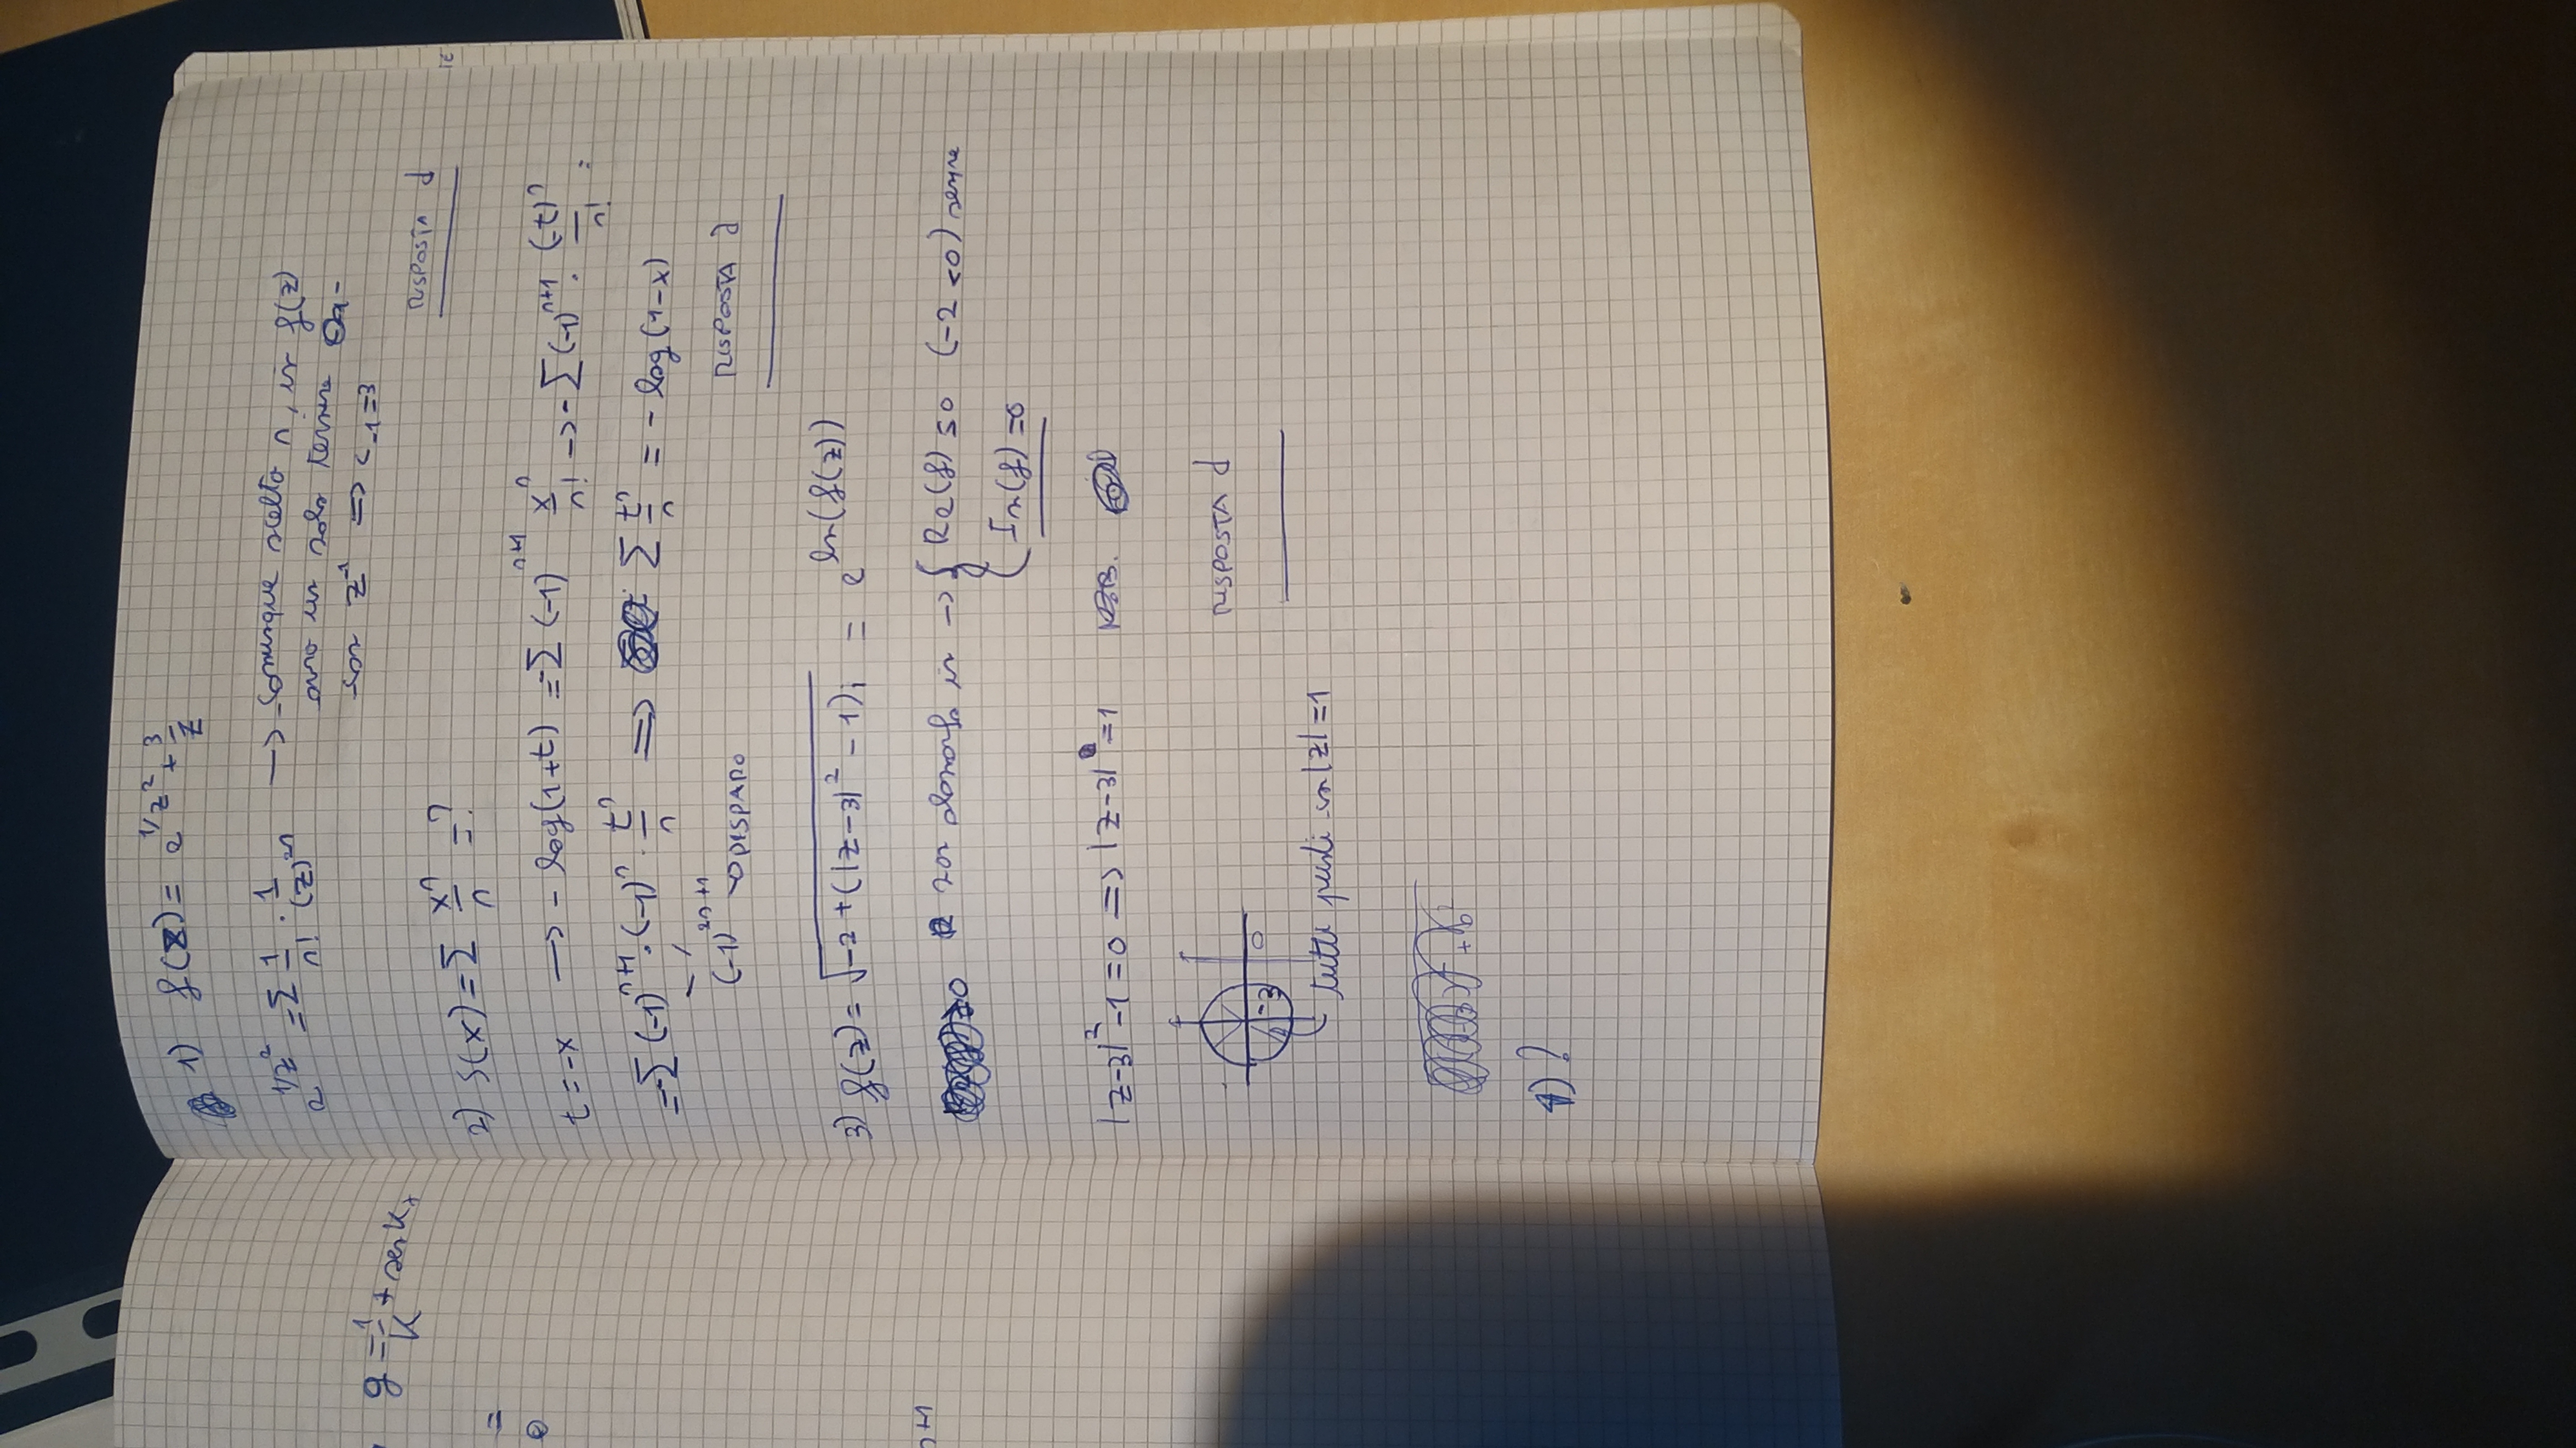 1) f(z) = e^{1/z^2} + 3/z
e^{1/z^2} = Σ 1/n! · 1/(z)^{2n} → comunque scelto n, in f(z)
avrò un solo termine
con z^{-1} => c_{-1} = 3
RISPOSTA d
g = 1/k + sen k,
2) S(x) = Σ x^n/n = ?
=
0
t = -x → - log(1+t) = -Σ (-1)^{n+1} x^n/n! → -Σ (-1)^{n+1} · (-t)^n/n! =
= -Σ (-1)^{n+1} · (-1)^n · t^n/n => Σ t^n/n = - log(1-x)
(-1)^{2n+1} → DISPARO
RISPOSTA d
3) f(z) = √(-2 + (|z-3|^2 - 1)i) = e^{ln(f(z))}
n+1
≥0 non olomorfa in → { Re(f) ≤ 0 (-2 < 0) sempre
Im(f) = 0
|z-3|^2 - 1 = 0 => |z-3| = 1
-3 0
RISPOSTA d
tutti punti in |z| = 1
4) ?